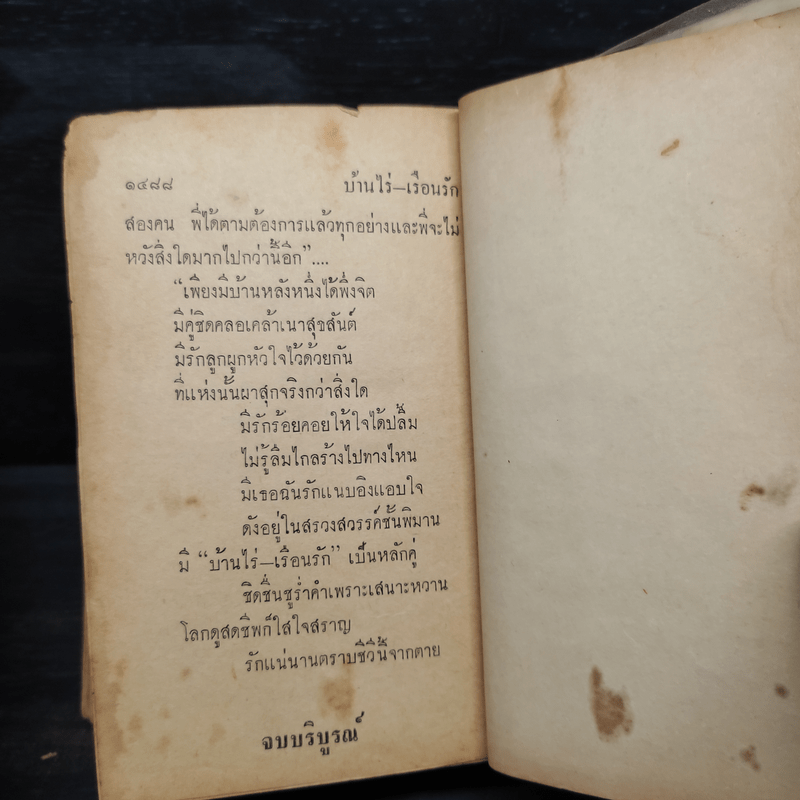 ๑๔๘๘ บ้านไร่—เรือนรัก
สองคน พี่ได้ตามต้องการแล้วทุกอย่างและพี่จะไม่
หวังสิ่งใดมากไปกว่านี้อีก”....
“เพียงมีบ้านหลังหนึ่งได้พึ่งจิต
มีคู่ชิดคลอเคล้าเนาสุขสันต์
มีรักลูกผูกหัวใจไว้ด้วยกัน
ที่แห่งนั้นผาสุกจริงกว่าสิ่งใด
มีรักร้อยคอยให้ใจได้ปลื้ม
ไม่รู้ลืมไกลร้างไปทางไหน
มีเธอฉันรักแนบอิงแอบใจ
ดังอยู่ในสรวงสวรรค์ชั้นพิมาน
มี “บ้านไร่—เรือนรัก” เป็นหลักคู่
ชิดชื่นชูร่ำคำเพราะเสนาะหวาน
โลกดูสดชีพก็ใสใจสราญ
รักแน่นานตราบชีวีนี้จากตาย
จบบริบูรณ์